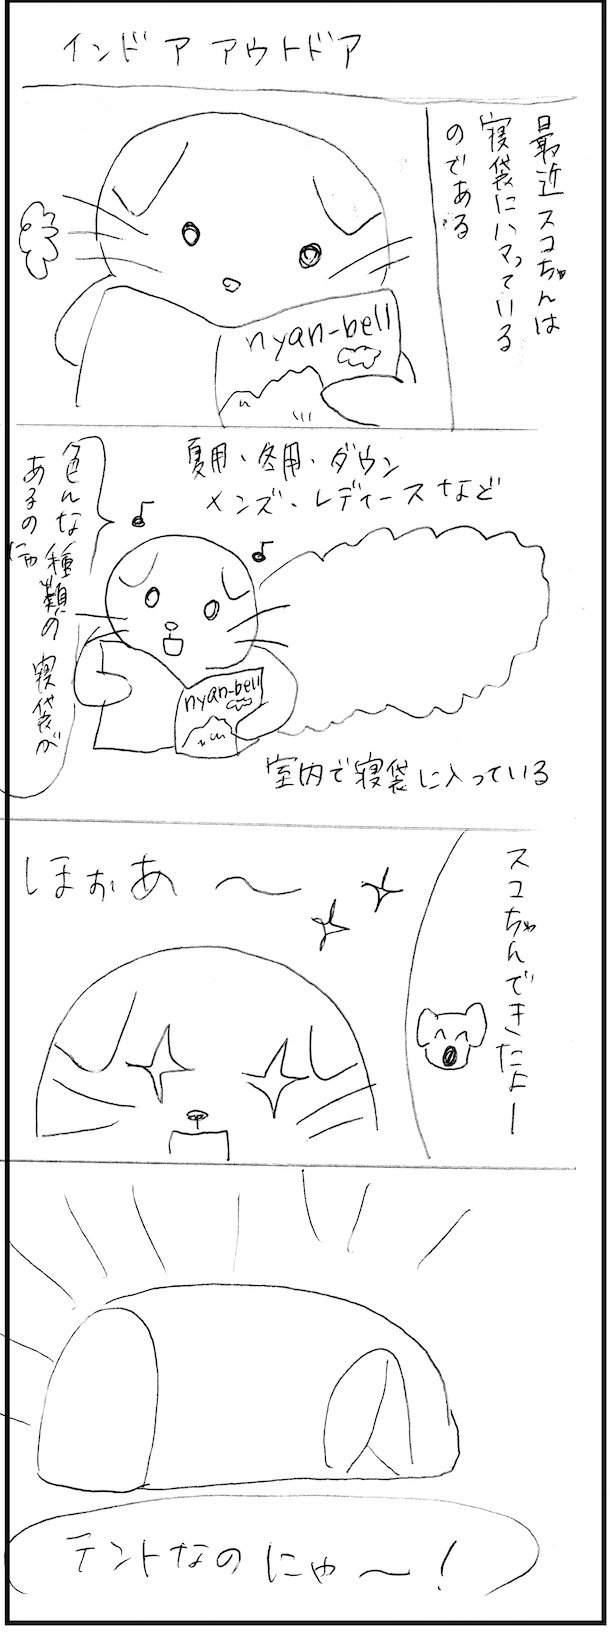 インドア アウトドア
最近スコちゃんは
寝袋にハマっている
のである
nyan-bell
夏用・冬用・ダウン
メンズ・レディース など
色んな種類の寝袋が
あるのにゃ
nyan-bell
室内で寝袋に入っている
スコちゃんできたよー
ほぉあ〜
テントなのにゃ〜!